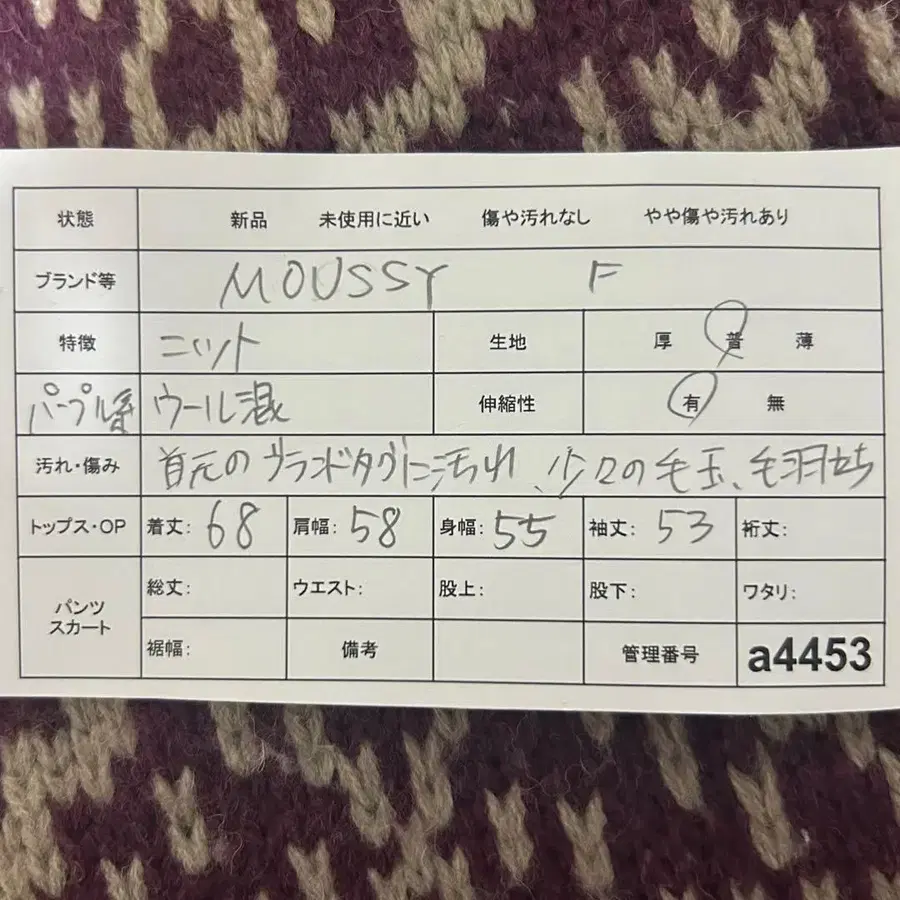 状態 新品 未使用に近い 傷や汚れなし やや傷や汚れあり
ブランド等 MOUSSY F
特徴 ニット 生地 厚 普 薄
パープル系 ウール混 伸縮性 有 無
汚れ・傷み 首元のブランドタグに汚れ、少々の毛玉、毛羽立ち
トップス・OP 着丈: 68 肩幅: 58 身幅: 55 袖丈: 53 裄丈:
パンツ
スカート
総丈: ウエスト: 股上: 股下: ワタリ:
裾幅: 備考 管理番号 a4453